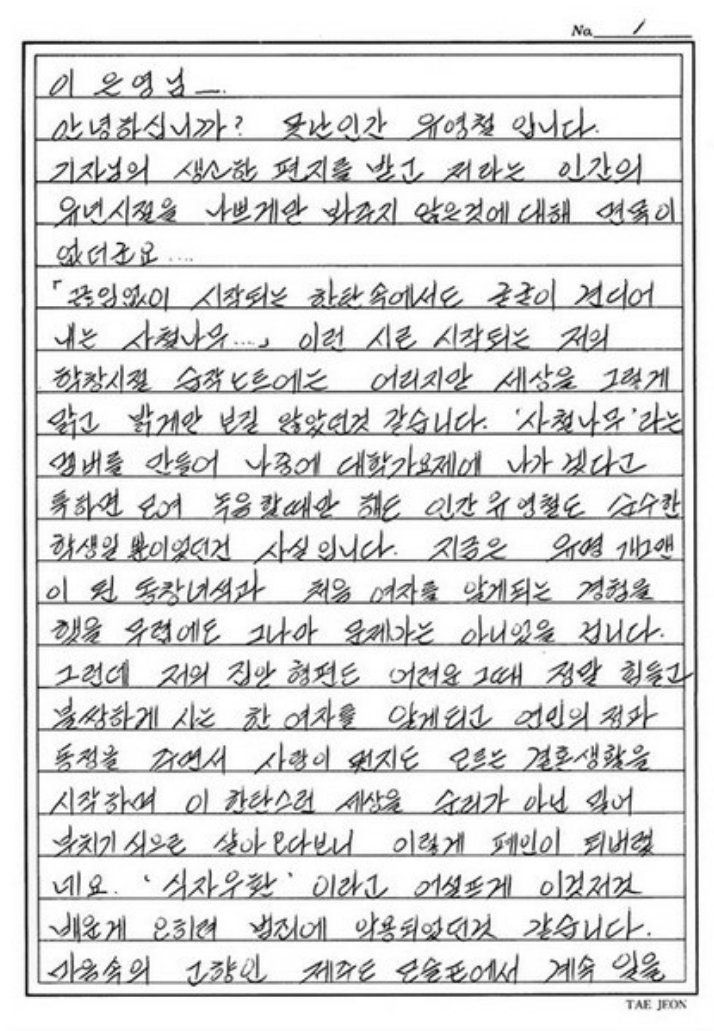 No. 1
이 은영 님 —.
안녕하십니까? 못난인간 유영철 입니다.
기자님의 생소한 편지를 받고 저라는 인간의
유년시절을 나쁘게만 봐주지 않은것에 대해 면목이
없더군요....
「끊임없이 시작되는 한탄 속에서도 굳굳이 견디어
내는 사철나무...」 이런 시로 시작되는 저의
학창시절 습작노트에는 어리지만 세상을 그렇게
맑고 밝게만 보길 않았던것 같습니다. '사철나무'라는
멤버를 만들어 나중에 대학가요제에 나가 겠다고
툭하면 모여 녹음 할때만 해도 인간 유영철도 순수한
학생일 뿐이었던건 사실 입니다. 지금은 유명 개그맨
이 된 동창녀석과 처음 여자를 알게되는 경험을
했을 무렵에도 그나마 문제아는 아니었을 겁니다.
그런데 저의 집안 형편도 어려운 그때 정말 힘들고
불쌍하게 사는 한 여자를 알게되고 연인의 정과
동정을 주면서 사랑이 뭔지도 모르는 결혼생활을
시작하며 이 한탄스런 세상을 순리가 아닌 밀어
부치기 식으로 살아 오다보니 이렇게 폐인이 되버렸
네요. '식자우환' 이라고 어설프게 이것저것
배운게 오히려 범죄에 악용되었던것 같습니다.
마음속의 고향인 제주도 모슬포에서 계속 일을
TAE JEON